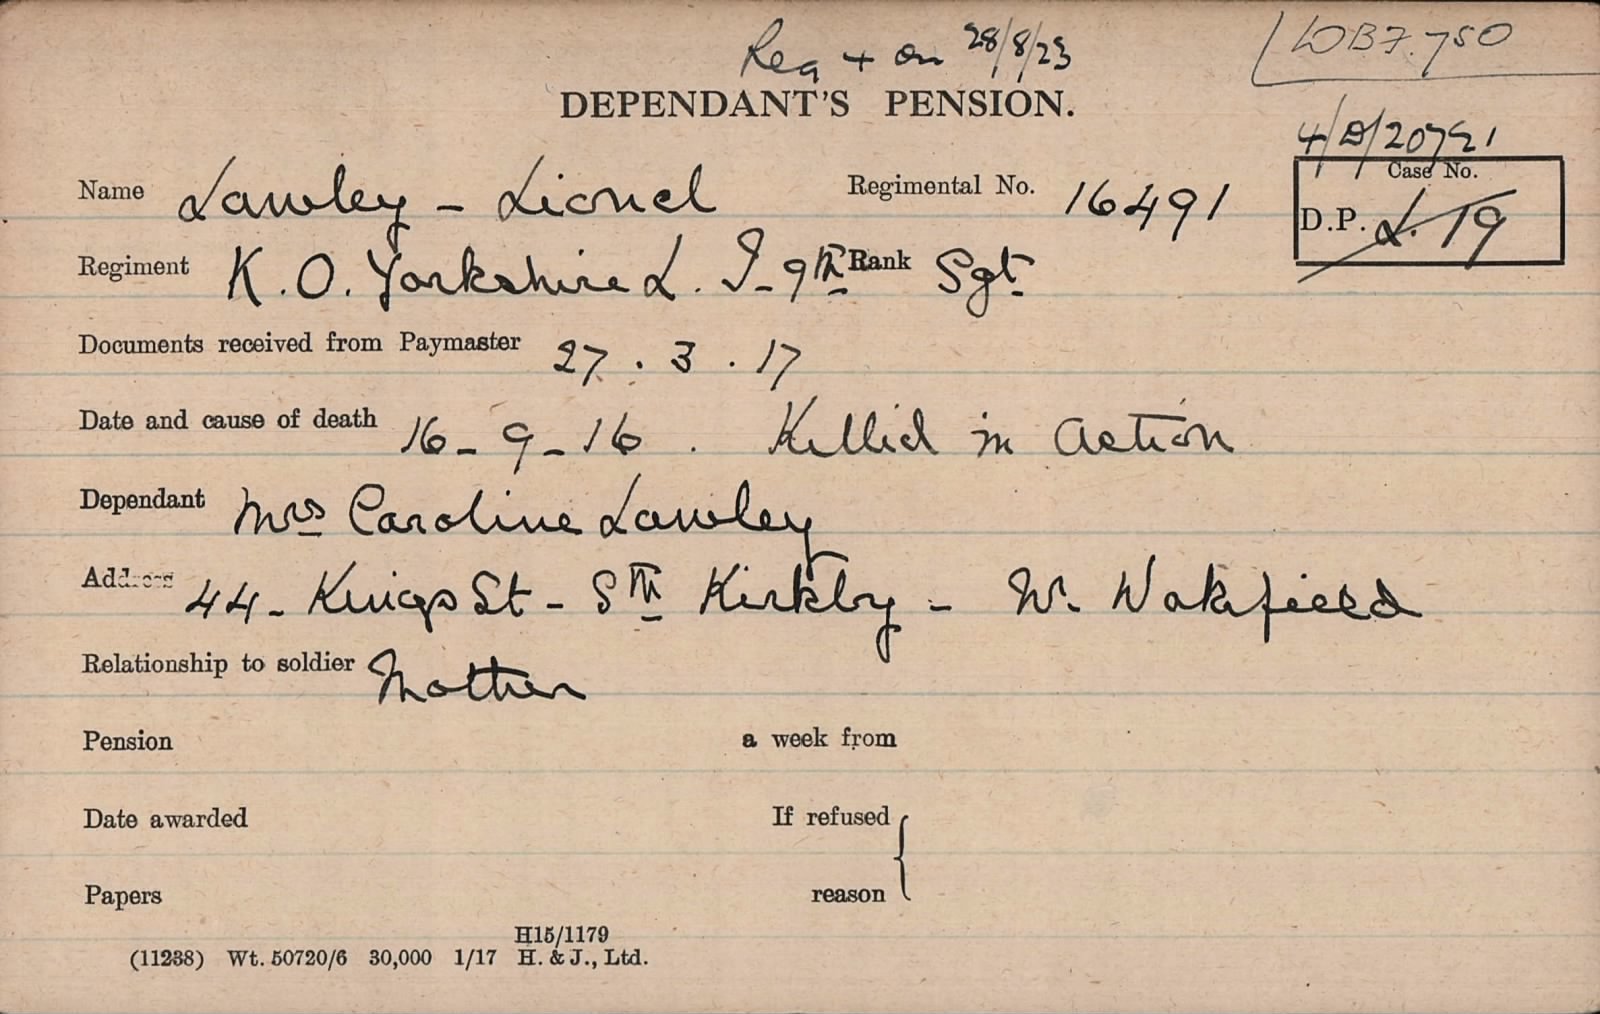 Reg + on 28/8/23
WB7.750
DEPENDANT'S PENSION.
4/D/20791
Case No.
D.P. L. 19
Name Lawley - Lionel Regimental No. 16491
Regiment K. O. Yorkshire L. I - 9th Rank Sgt
Documents received from Paymaster 27 . 3 . 17
Date and cause of death 16 - 9 - 16 . Killed in action
Dependant Mrs Caroline Lawley
Address 44 - Kings St - Sth Kirkby - Nr. Wakefield
Relationship to soldier Mother
Pension a week from
Date awarded If refused
Papers reason
H15/1179
(11238) Wt. 50720/6 30,000 1/17 H. & J., Ltd.